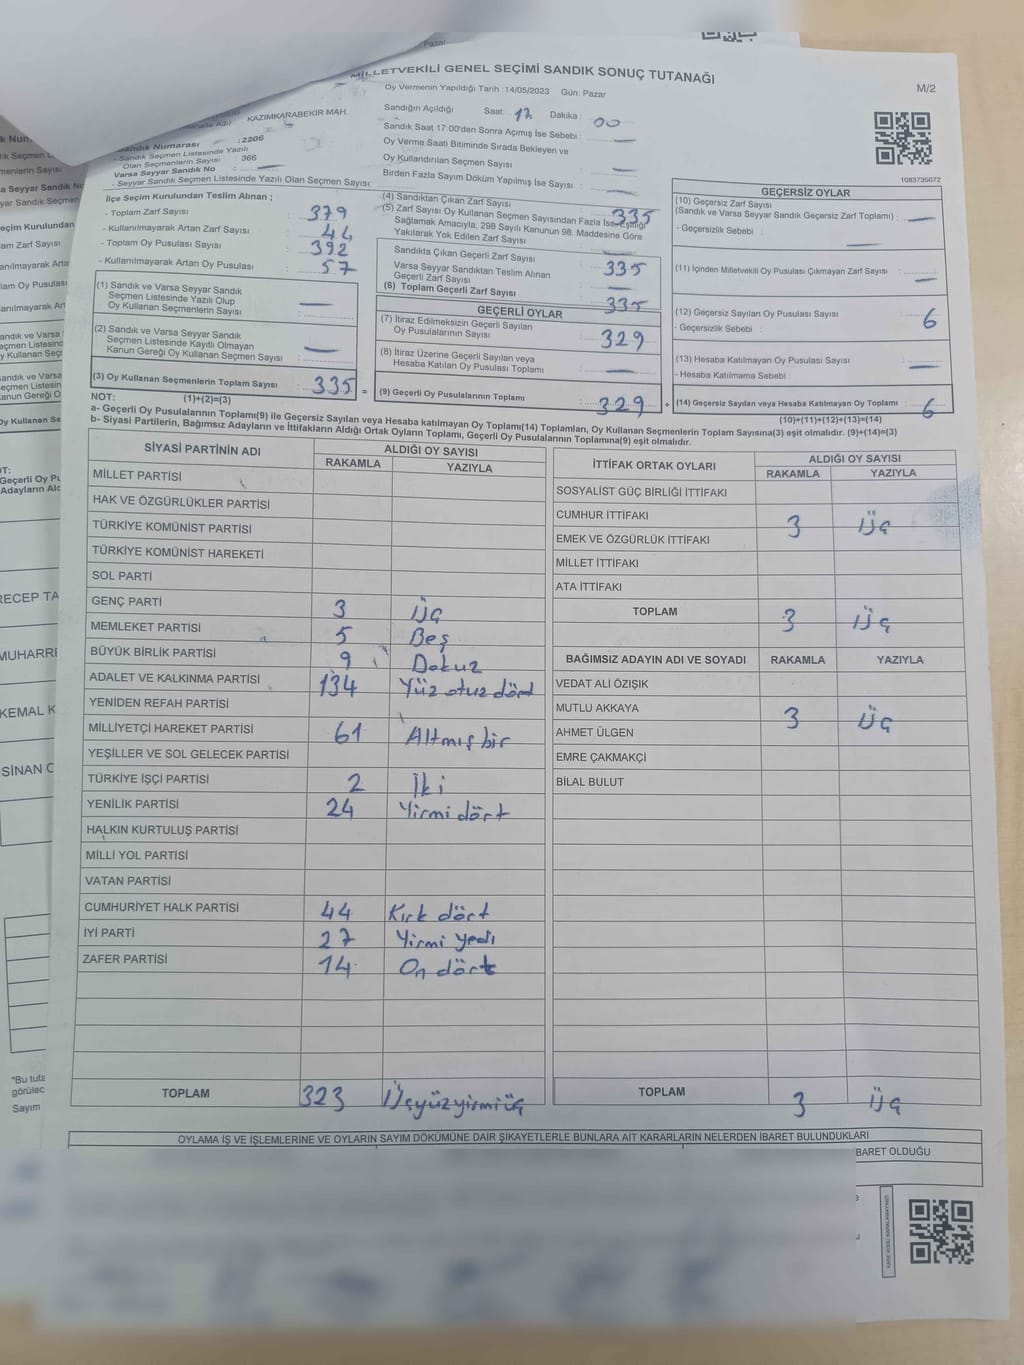 Pazar
MİLLETVEKİLİ GENEL SEÇİMİ SANDIK SONUÇ TUTANAĞI
M/2
Oy Vermenin Yapıldığı Tarih 14/05/2023 Gün: Pazar
KAZIMKARABEKİR MAH.
Sandık Numarası : 2206
- Sandık Seçmen Listesinde Yazılı
Olan Seçmenlerin Sayısı : 366
Varsa Seyyar Sandık No
- Seyyar Sandık Seçmen Listesinde Yazılı Olan Seçmen Sayısı:
Sandığın Açıldığı Saat: 17 Dakika : 00
Sandık Saat 17.00'den Sonra Açımış İse Sebebi :
Oy Verme Saati Bitiminde Sırada Bekleyen ve
Oy Kullandırılan Seçmen Sayısı
Birden Fazla Sayım Döküm Yapılmış İse Sayısı :
1083735072
İlçe Seçim Kurulundan Teslim Alınan ;
- Toplam Zarf Sayısı : 379
- Kullanılmayarak Artan Zarf Sayısı : 44
- Toplam Oy Pusulası Sayısı : 392
- Kullanılmayarak Artan Oy Pusulası : 57
(1) Sandık ve Varsa Seyyar Sandık
Seçmen Listesinde Yazılı Olup
Oy Kullanan Seçmenlerin Sayısı :
(2) Sandık ve Varsa Seyyar Sandık
Seçmen Listesinde Kayıtlı Olmayan
Kanun Gereği Oy Kullanan Seçmen Sayısı :
(3) Oy Kullanan Seçmenlerin Toplam Sayısı : 335 =
(4) Sandıktan Çıkan Zarf Sayısı : 335
(5) Zarf Sayısı Oy Kullanan Seçmen Sayısından Fazla İse Eşitliği
Sağlamak Amacıyla; 298 Sayılı Kanunun 98. Maddesine Göre
Yakılarak Yok Edilen Zarf Sayısı :
Sandıkta Çıkan Geçerli Zarf Sayısı : 335
Varsa Seyyar Sandıktan Teslim Alınan
Geçerli Zarf Sayısı :
(6) Toplam Geçerli Zarf Sayısı : 335
GEÇERLİ OYLAR
(7) İtiraz Edilmeksizin Geçerli Sayılan
Oy Pusulalarının Sayısı : 329
(8) İtiraz Üzerine Geçerli Sayılan veya
Hesaba Katılan Oy Pusulası Toplamı :
(9) Geçerli Oy Pusulalarının Toplamı : 329 +
GEÇERSİZ OYLAR
(10) Geçersiz Zarf Sayısı
(Sandık ve Varsa Seyyar Sandık Geçersiz Zarf Toplamı) :
- Geçersizlik Sebebi :
(11) İçinden Milletvekili Oy Pusulası Çıkmayan Zarf Sayısı :
(12) Geçersiz Sayılan Oy Pusulası Sayısı : 6
- Geçersizlik Sebebi :
(13) Hesaba Katılmayan Oy Pusulası Sayısı :
- Hesaba Katılmama Sebebi :
(14) Geçersiz Sayılan veya Hesaba Katılmayan Oy Toplamı : 6
NOT: (1)+(2)=(3)
(10)+(11)+(12)+(13)=(14)
a- Geçerli Oy Pusulalarının Toplamı(9) ile Geçersiz Sayılan veya Hesaba Katılmayan Oy Toplamı(14) Toplamları, Oy Kullanan Seçmenlerin Toplam Sayısına(3) eşit olmalıdır. (9)+(14)=(3)
b- Siyasi Partilerin, Bağımsız Adayların ve İttifakların Aldığı Ortak Oyların Toplamı, Geçerli Oy Pusulalarının Toplamına(9) eşit olmalıdır.
SİYASİ PARTİNİN ADI ALDIĞI OY SAYISI
RAKAMLA YAZIYLA
MİLLET PARTİSİ
HAK VE ÖZGÜRLÜKLER PARTİSİ
TÜRKİYE KOMÜNİST PARTİSİ
TÜRKİYE KOMÜNİST HAREKETİ
SOL PARTİ
GENÇ PARTİ 3 Üç
MEMLEKET PARTİSİ 5 Beş
BÜYÜK BİRLİK PARTİSİ 9 Dokuz
ADALET VE KALKINMA PARTİSİ 134 Yüz otuz dört
YENİDEN REFAH PARTİSİ
MİLLİYETÇİ HAREKET PARTİSİ 61 Altmış bir
YEŞİLLER VE SOL GELECEK PARTİSİ
TÜRKİYE İŞÇİ PARTİSİ 2 İki
YENİLİK PARTİSİ 24 Yirmi dört
HALKIN KURTULUŞ PARTİSİ
MİLLİ YOL PARTİSİ
VATAN PARTİSİ
CUMHURİYET HALK PARTİSİ 44 Kırk dört
İYİ PARTİ 27 Yirmi yedi
ZAFER PARTİSİ 14 On dört
TOPLAM 323 Üçyüzyirmiüç
İTTİFAK ORTAK OYLARI ALDIĞI OY SAYISI
RAKAMLA YAZIYLA
SOSYALİST GÜÇ BİRLİĞİ İTTİFAKI
CUMHUR İTTİFAKI 3 Üç
EMEK VE ÖZGÜRLÜK İTTİFAKI
MİLLET İTTİFAKI
ATA İTTİFAKI
TOPLAM 3 Üç
BAĞIMSIZ ADAYIN ADI VE SOYADI RAKAMLA YAZIYLA
VEDAT ALİ ÖZIŞIK
MUTLU AKKAYA 3 Üç
AHMET ÜLGEN
EMRE ÇAKMAKÇİ
BİLAL BULUT
TOPLAM 3 Üç
OYLAMA İŞ VE İŞLEMLERİNE VE OYLARIN SAYIM DÖKÜMÜNE DAİR ŞİKAYETLERLE BUNLARA AİT KARARLARIN NELERDEN İBARET BULUNDUKLARI
BARET OLDUĞU
RECEP TA
MUHARR
KEMAL K
SİNAN
"Bu tuta
görülec
Sayım